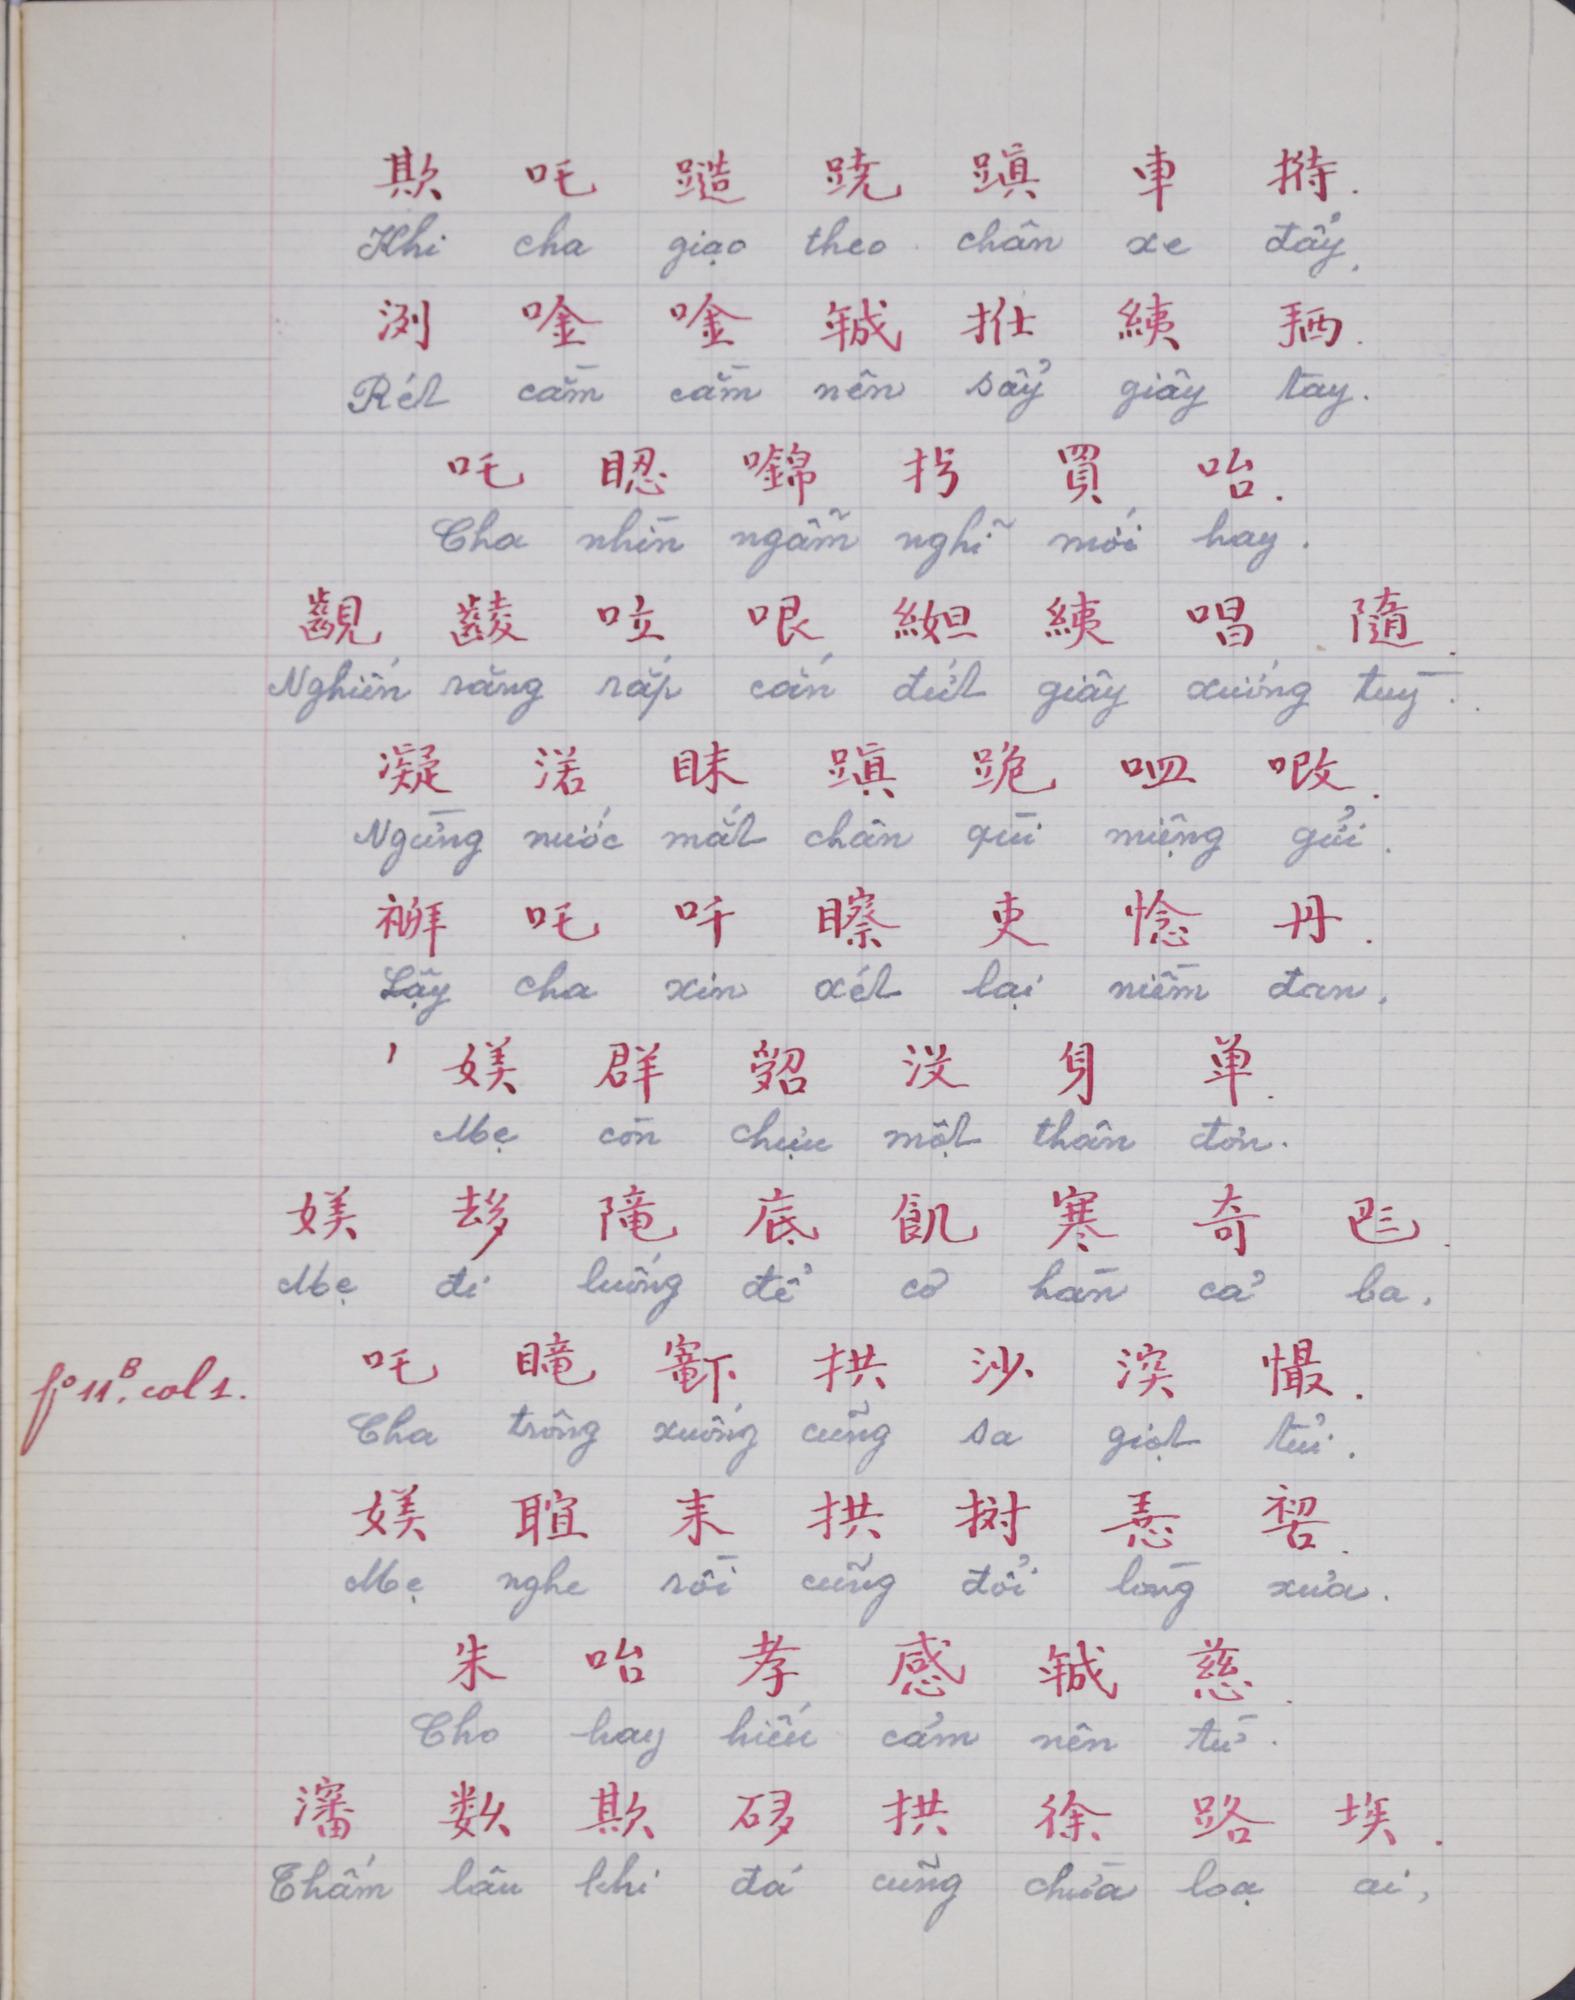 欺 吒 𨅹 蹺 蹎 車 㨃.
Khi cha giạo theo chân xe đẩy,
洌 唫 唫 𢧚 扗 𦀊 𢬣.
Rét cầm cầm nên sẩy giây tay.
吒 𥆾 㘋 𢪀 買 咍.
Cha nhìn ngẫm nghĩ mới hay.
𪘵 𪘅 㕸 哏 𦀹 𦀊 唱 隨.
Nghiến răng rắp cắn đứt giây xướng tuỳ.
凝 渃 眜 蹎 跪 𠰘 㖫.
Ngừng nước mắt chân quì miệng gửi.
𥛉 吒 吀 瞭 吏 惗 丹.
Lậy cha xin xét lại niềm đan,
媄 群 𠹾 没 身 单.
Mẹ còn chựu một thân đơn.
媄 𠫾 隴 底 飢 寒 奇 𠀧.
Mẹ đi luống để cơ hàn cả ba,
fº 11.ᴮ col 1.
吒 𥊚 𡬈 拱 沙 湥 慛.
Cha trông xuống cũng sa giọt tủi.
媄 𦖑 耒 拱 𢷮 𢚸 𠸗.
Mẹ nghe rồi cũng đổi lòng xưa.
朱 咍 孝 感 𢧚 慈.
Cho hay hiếu cảm nên từ.
瀋 数 欺 𥒥 拱 徐 路 埃.
Thấm lâu khi đá cũng chừa loạ ai,